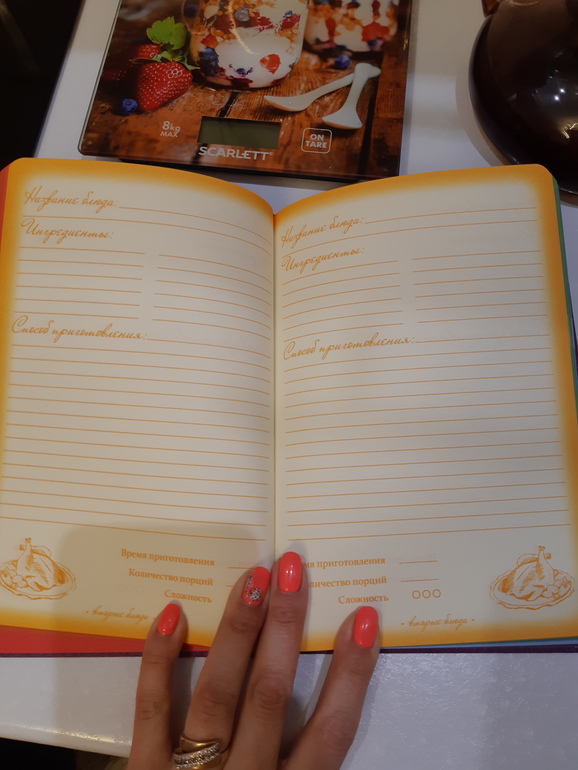 8kg
MAX
SCARLETT
ON
TARE
Название блюда:
Ингредиенты:
Способ приготовления:
Время приготовления
Количество порций
Сложность
• вторые блюда •
Название блюда:
Ингредиенты:
Способ приготовления:
мя приготовления
личество порций
Сложность
• вторые блюда •